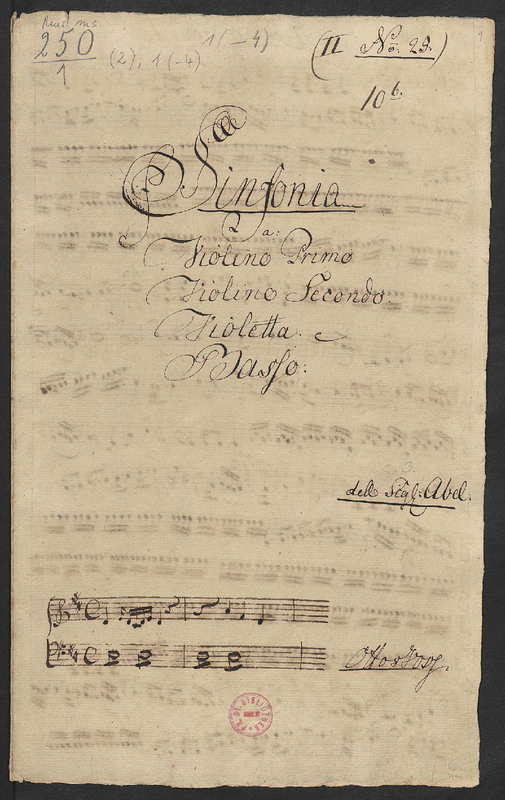 Mus. ms.
250
1
(2), 1 (-4)
1 (-4)
(II No: 29.)
10 b.
1
Sinfonia
a:
Violino Primo
Violino Secondo.
Violetta. e
Basso:
dell Sigl: Abel.